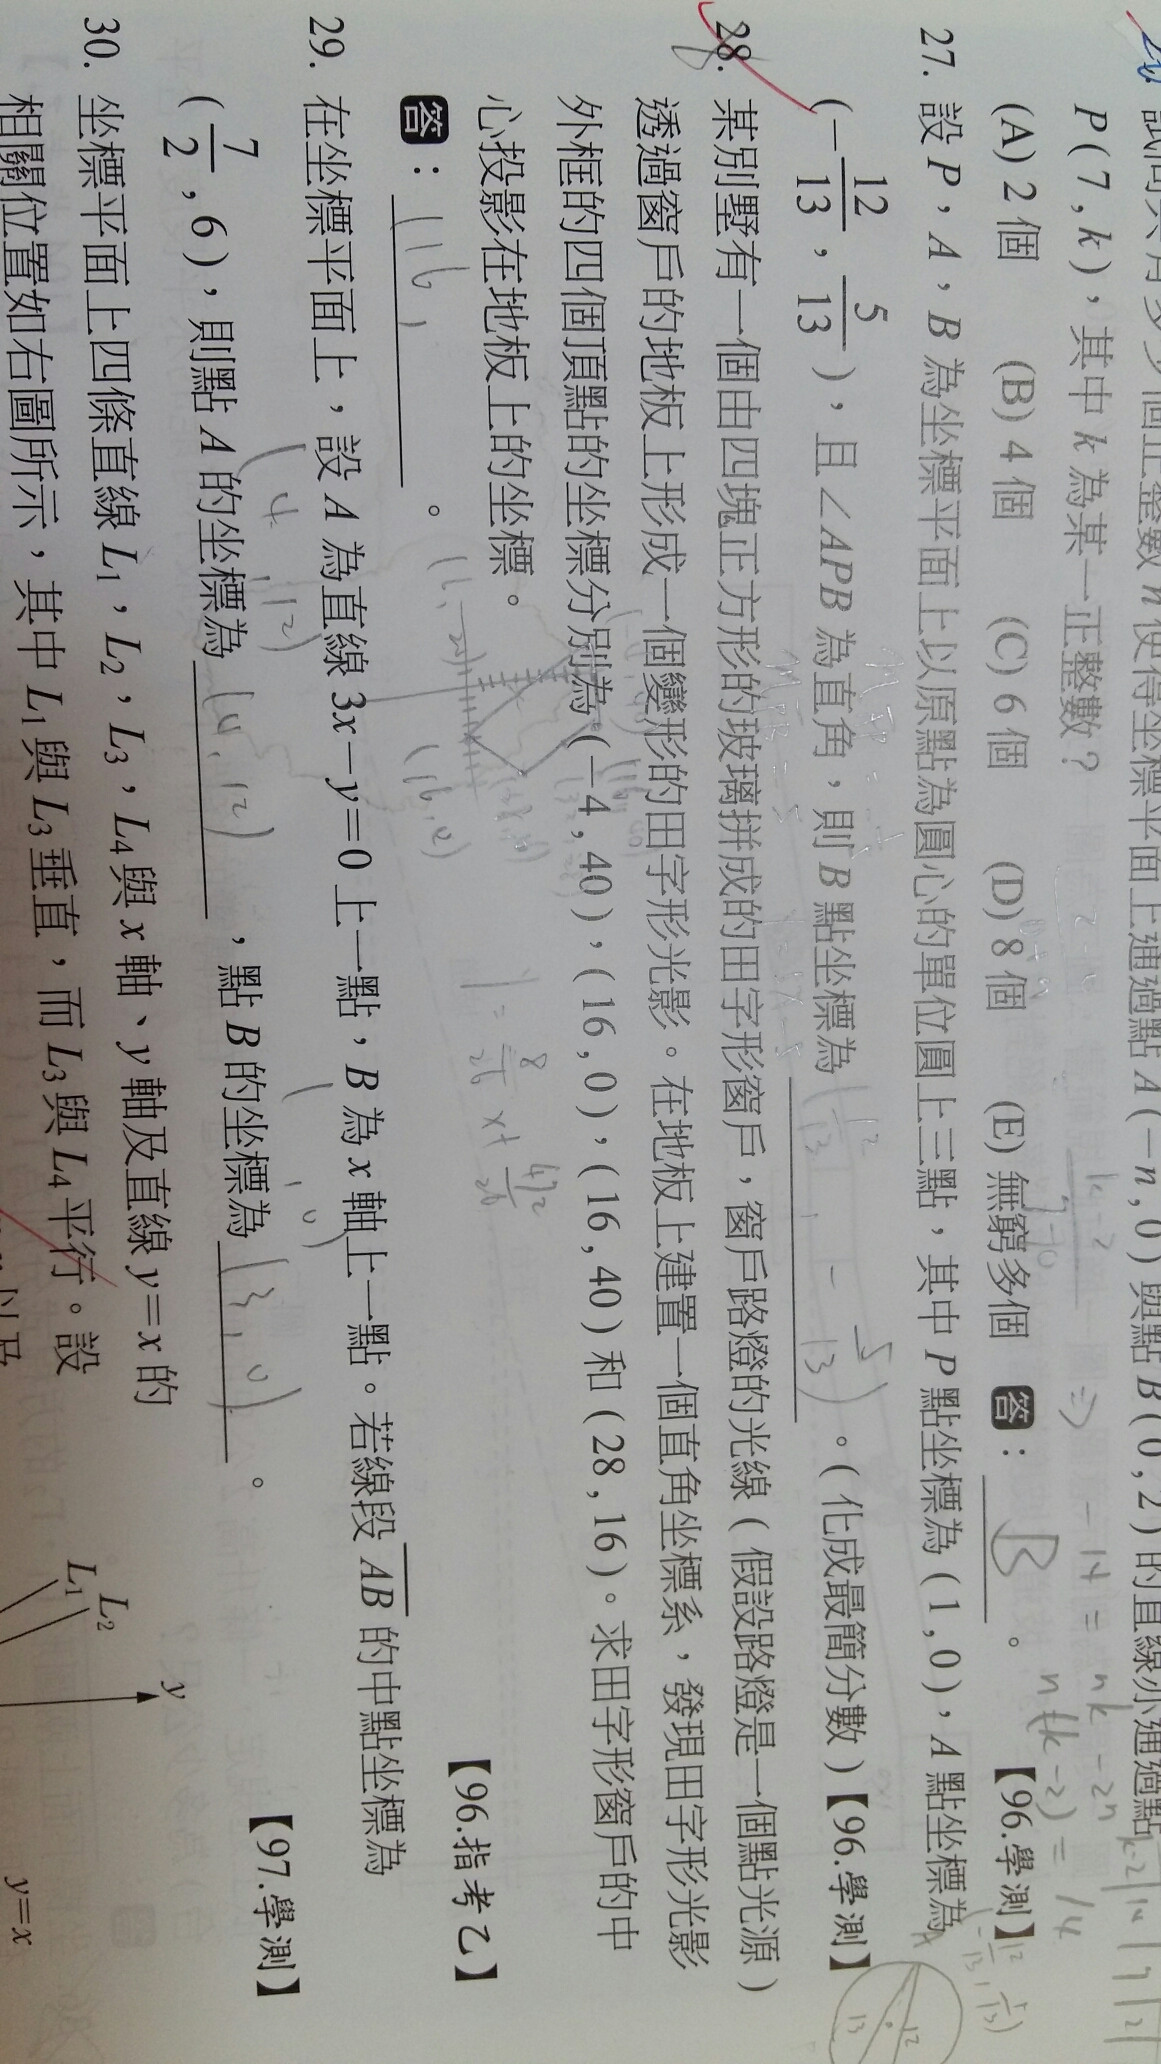 試問共有多少個正整數 n 使得坐標平面上通過點 A(-n, 0) 與點 B(0, 2) 的直線亦通過點
P(7, k), 其中 k 為某一正整數？
(A) 2 個 (B) 4 個 (C) 6 個 (D) 8 個 (E) 無窮多個 答： B 。 【96.學測】
27. 設 P, A, B 為坐標平面上以原點為圓心的單位圓上三點, 其中 P 點坐標為 (1, 0), A 點坐標為
(-12/13, 5/13), 且∠APB 為直角, 則 B 點坐標為 (12/13, -5/13) 。(化成最簡分數)【96.學測】
28. 某別墅有一個由四塊正方形的玻璃拼成的田字形窗戶, 窗戶路燈的光線(假設路燈是一個點光源)
透過窗戶的地板上形成一個變形的田字形光影。在地板上建置一個直角坐標系, 發現田字形光影
外框的四個頂點的坐標分別為 (-4, 40), (16, 0), (16, 40) 和 (28, 16)。求田字形窗戶的中
心投影在地板上的坐標。
【96.指考乙】
答： (16, 。
(16, 0)
y = 8/26 x + 492/26
29. 在坐標平面上, 設 A 為直線 3x-y=0 上一點, B 為 x 軸上一點。若線段 AB 的中點坐標為
(7/2, 6), 則點 A 的坐標為 (4, 12) , 點 B 的坐標為 (3, 0) 。 【97.學測】
(4, 12)
30. 坐標平面上四條直線 L1, L2, L3, L4 與 x 軸、y 軸及直線 y=x 的
相關位置如右圖所示, 其中 L1 與 L3 垂直, 而 L3 與 L4 平行。設
L1 L2 y y=x
k-2
-14 = nk-2n
n(k-2) = 14
12 13